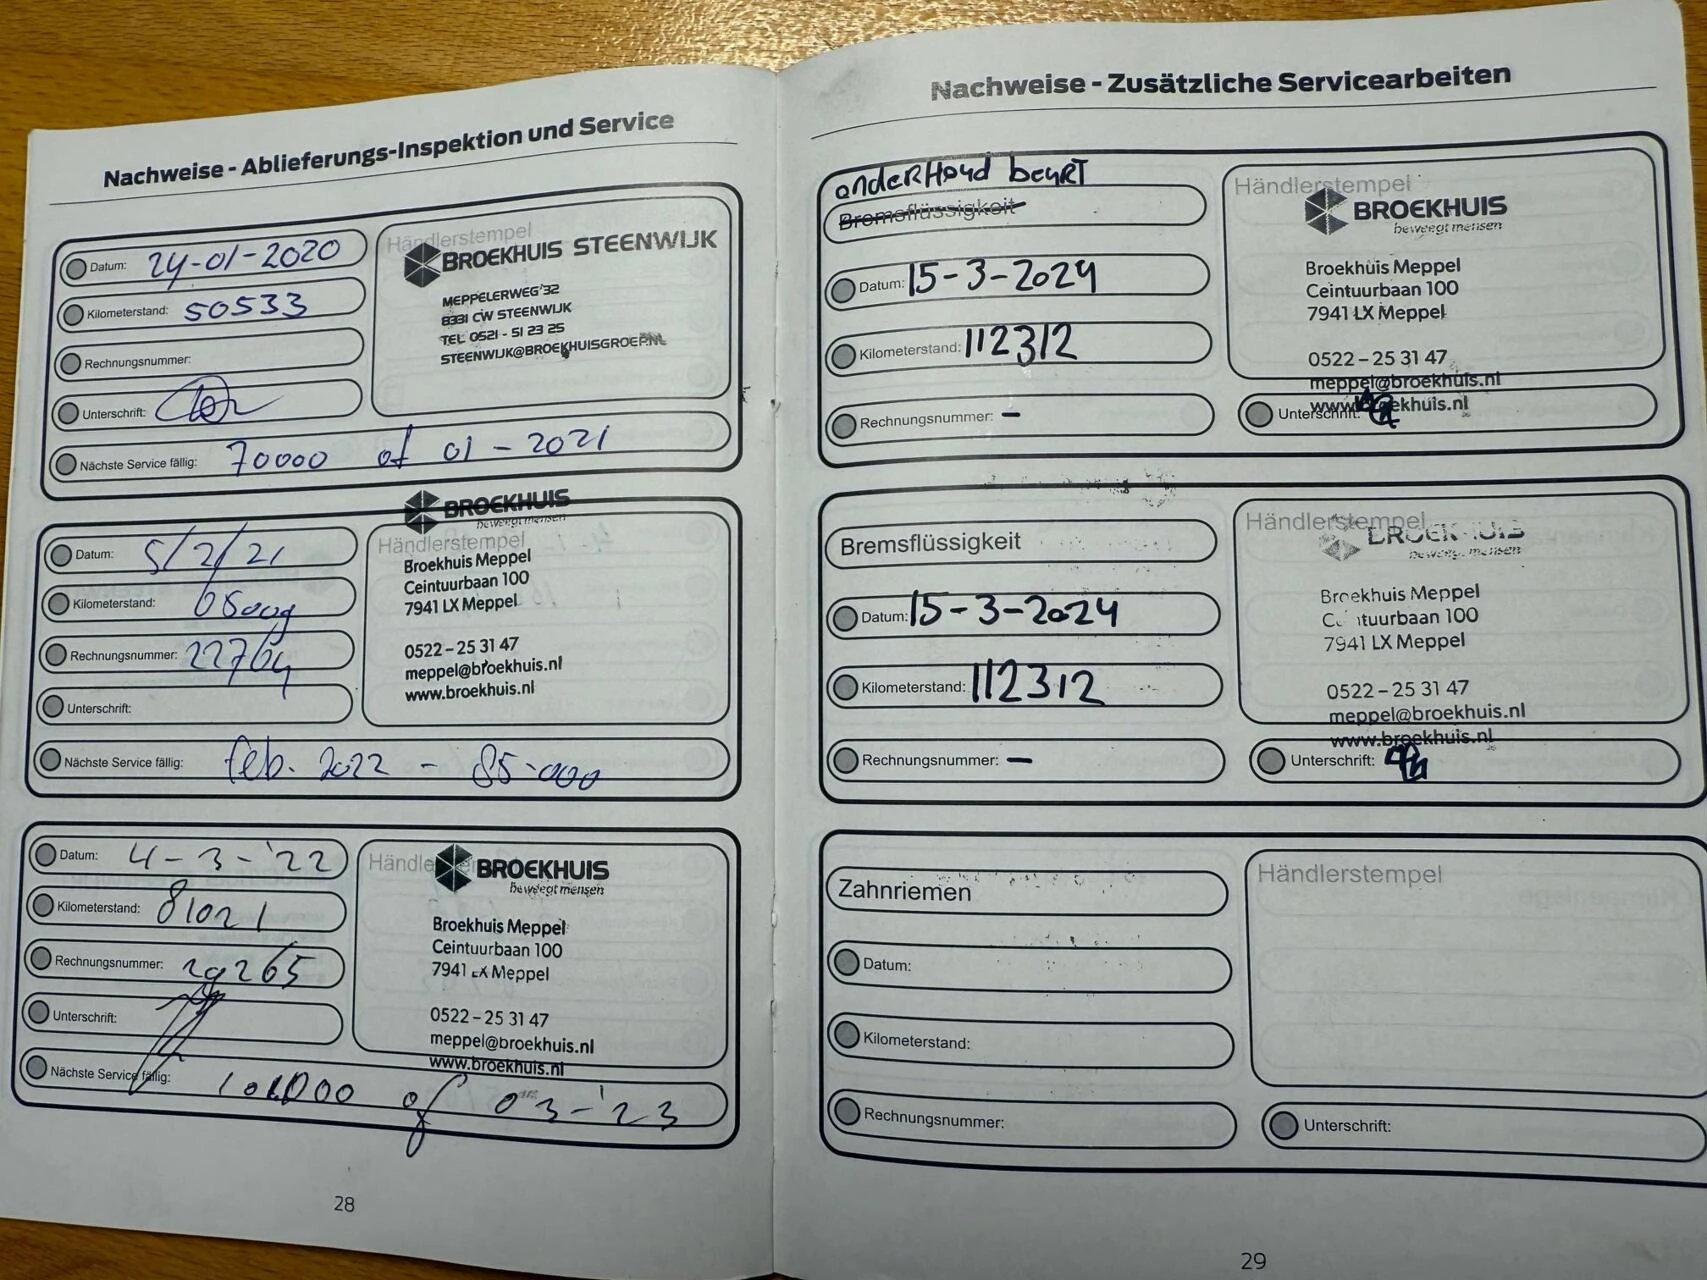 Nachweise - Ablieferungs-Inspektion und Service
Datum: 24-01-2020
Kilometerstand: 50533
Rechnungsnummer:
Unterschrift:
Nächste Service fällig: 70000 of 01 - 2021
Händlerstempel
BROEKHUIS STEENWIJK
MEPPELERWEG 32
8331 CW STEENWIJK
TEL 0521 - 51 23 25
STEENWIJK@BROEKHUISGROEP.NL
Datum: 5/2/21
Kilometerstand:
Rechnungsnummer:
Unterschrift:
Nächste Service fällig: feb. 2022 - 85.000
BROEKHUIS
beweegt mensen
Händlerstempel
Broekhuis Meppel
Ceintuurbaan 100
7941 LX Meppel
0522 - 25 31 47
meppel@broekhuis.nl
www.broekhuis.nl
Datum: 4-3-'22
Kilometerstand: 81021
Rechnungsnummer: 29265
Unterschrift:
Nächste Service fällig: of 03-'23
BROEKHUIS
beweegt mensen
Broekhuis Meppel
Ceintuurbaan 100
7941 LX Meppel
0522 - 25 31 47
meppel@broekhuis.nl
www.broekhuis.nl
28
Nachweise - Zusätzliche Servicearbeiten
onderHoud beurt
Bremsflüssigkeit
Datum: 15-3-2024
Kilometerstand: 112312
Rechnungsnummer: -
Händlerstempel
BROEKHUIS
beweegt mensen
Broekhuis Meppel
Ceintuurbaan 100
7941 LX Meppel
0522 - 25 31 47
meppel@broekhuis.nl
www.broekhuis.nl
Unterschrift:
Bremsflüssigkeit
Datum: 15-3-2024
Kilometerstand: 112312
Rechnungsnummer: -
Händlerstempel
BROEKHUIS
beweegt mensen
Broekhuis Meppel
Ceintuurbaan 100
7941 LX Meppel
0522 - 25 31 47
meppel@broekhuis.nl
www.broekhuis.nl
Unterschrift:
Zahnriemen
Datum:
Kilometerstand:
Rechnungsnummer:
Händlerstempel
Unterschrift:
29